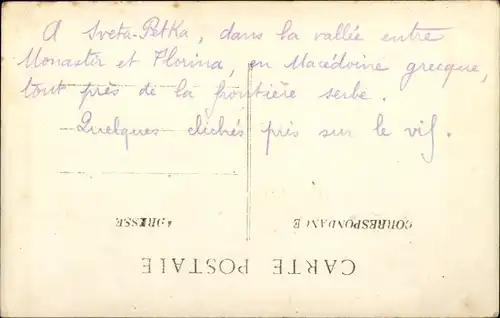 A Sveta-Petka, dans la vallée entre
Monastir et Florina, en Macédoine grecque,
tout près de la frontière serbe.
Quelques clichés pris sur le vif.
CORRESPONDANCE
ADRESSE
CARTE POSTALE